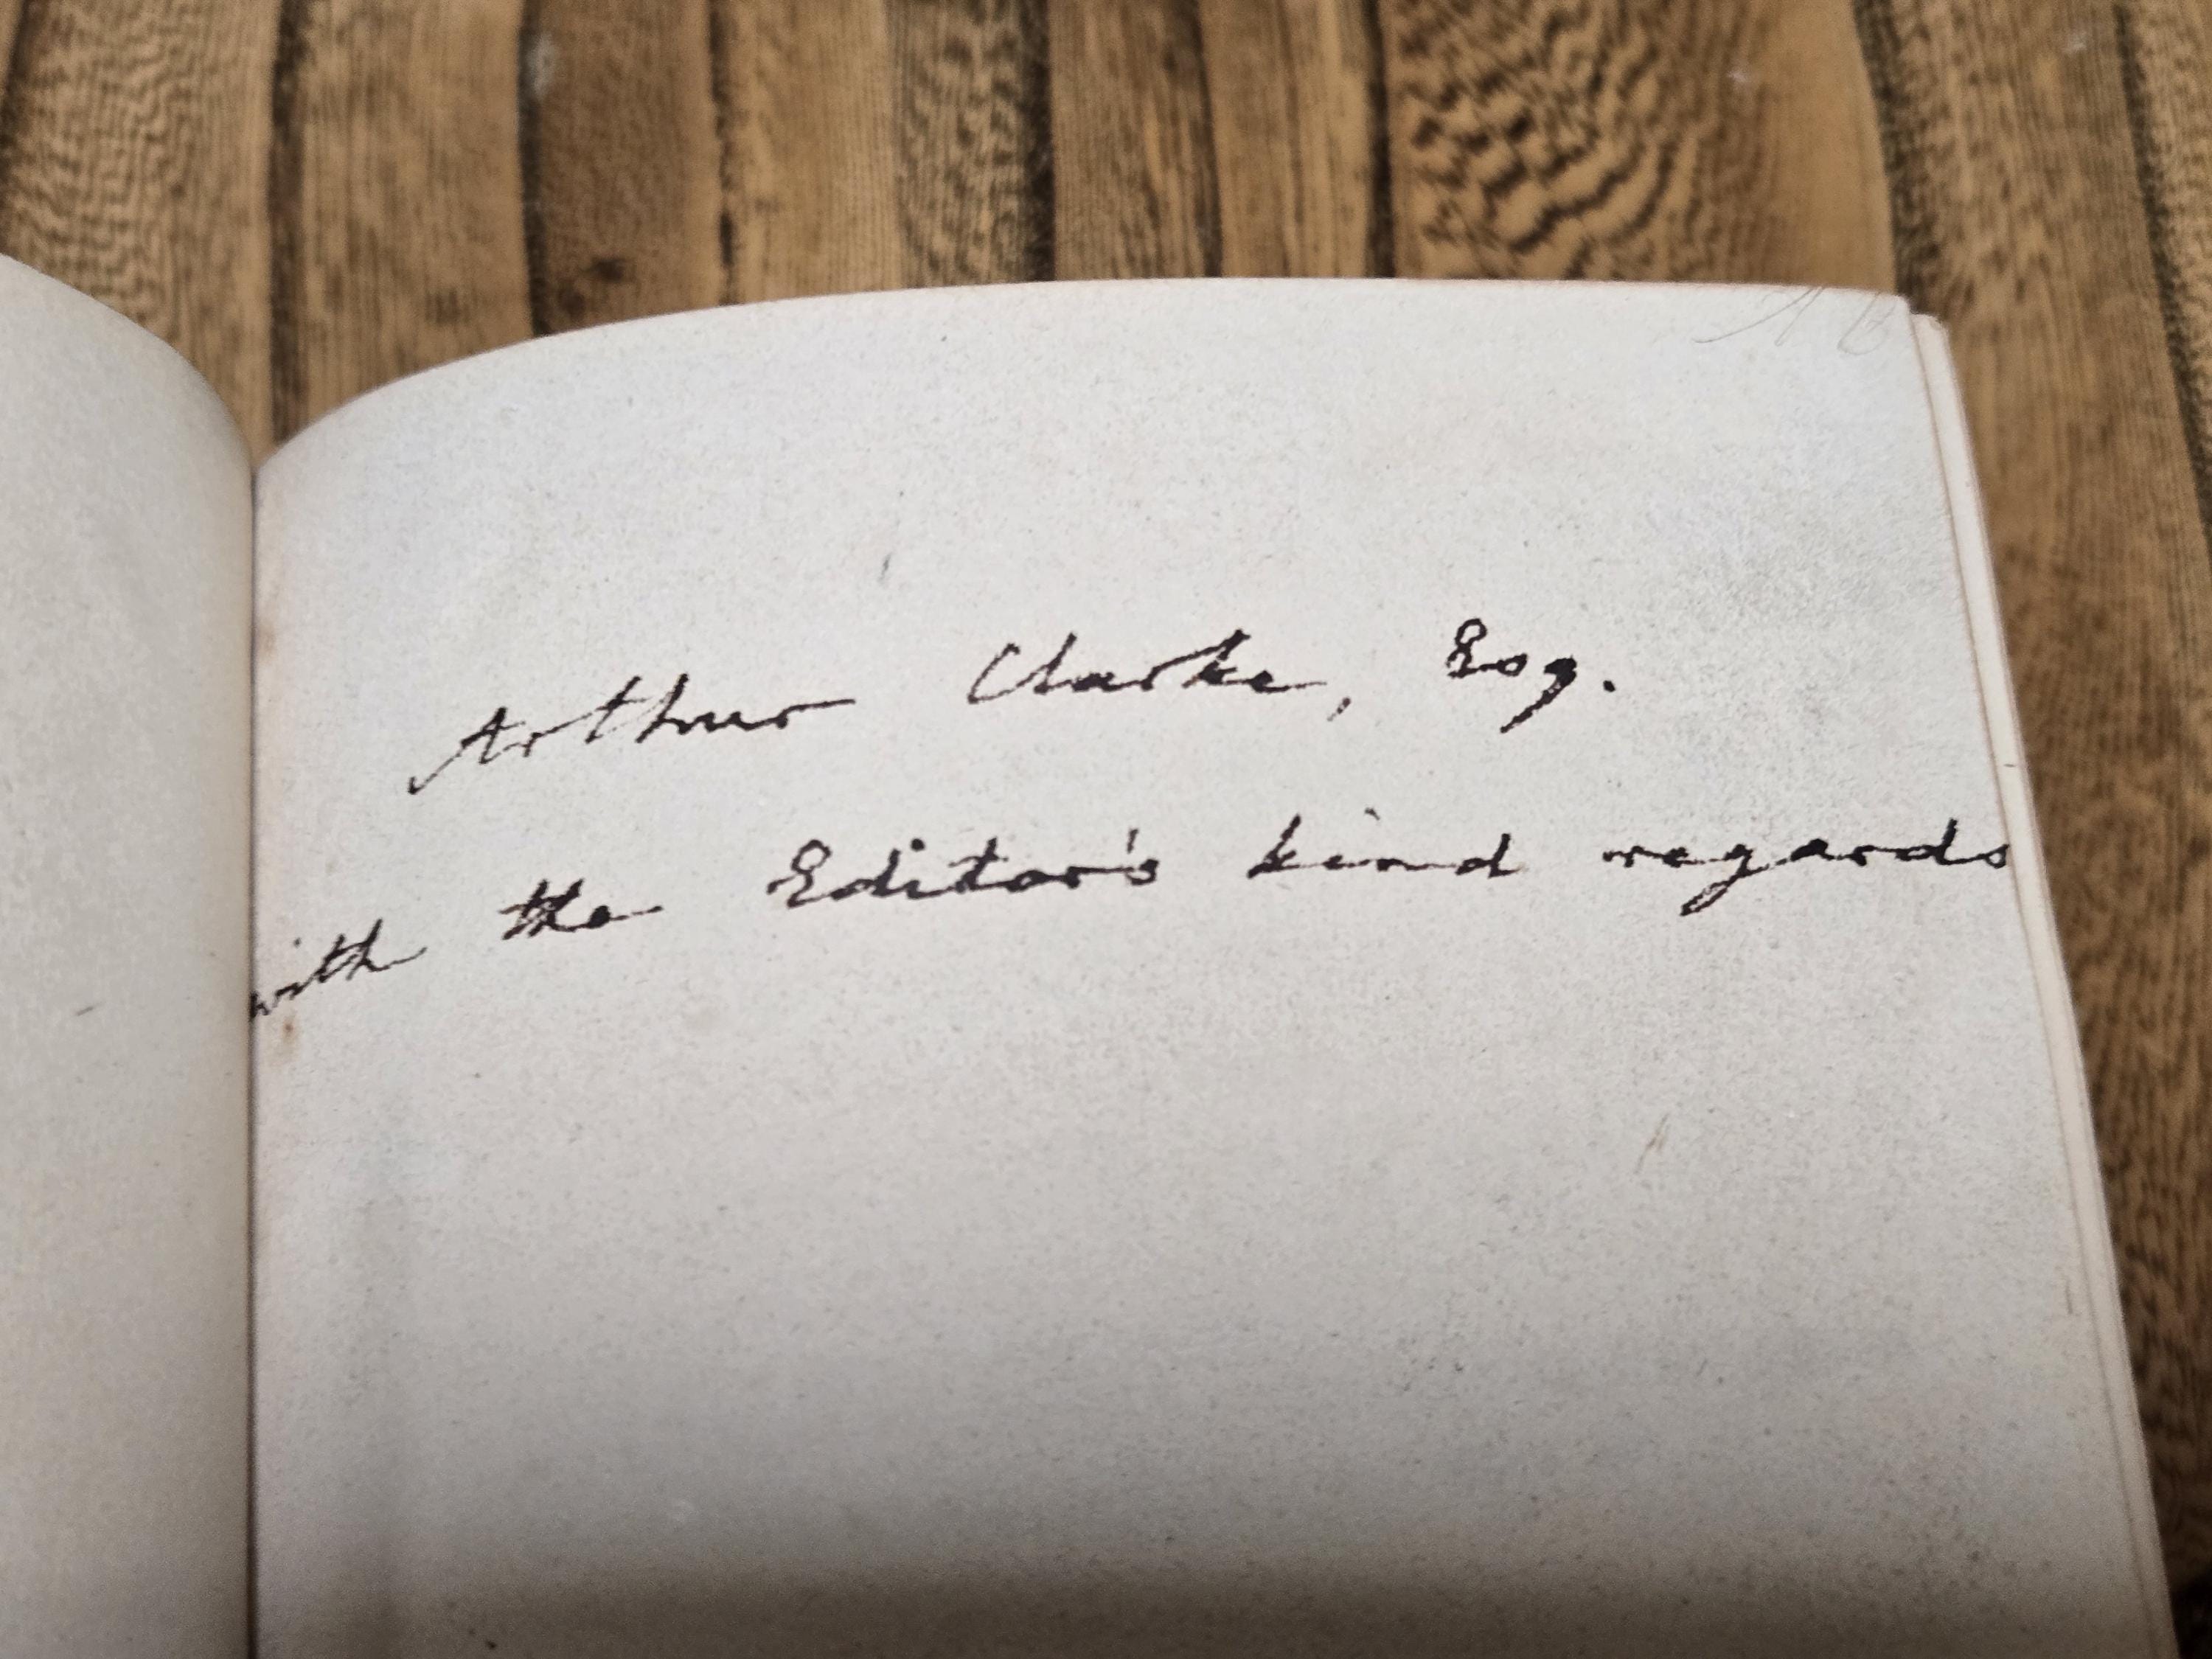 Arthur Clarke, Esq.
with the Editor's kind regards